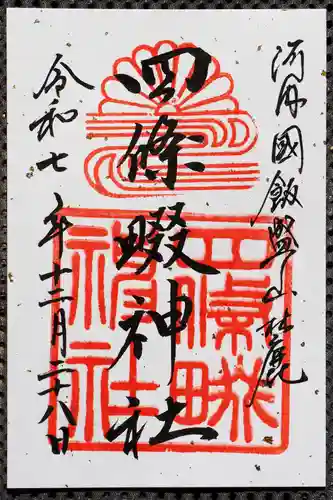 河内國飯盛山麓
四條畷神社
令和七年十二月二十八日
四條畷神社